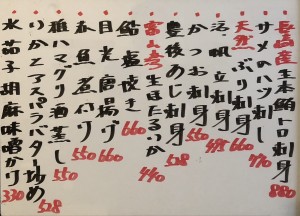 長崎産生本鮪トロ刺身 880
サメのハツ刺し 770
天然ぶり刺身 660
活〆帆立刺身 495
かつお刺身 550
豊後あじ刺身 528
富山湾生ほたるいか 440
鮎塩焼き 660
目光唐揚げ 660
赤魚煮付け 550
種ハマグリ酒蒸し 550
いかとアスパラバター炒め 528
水茄子胡麻味噌かけ 330